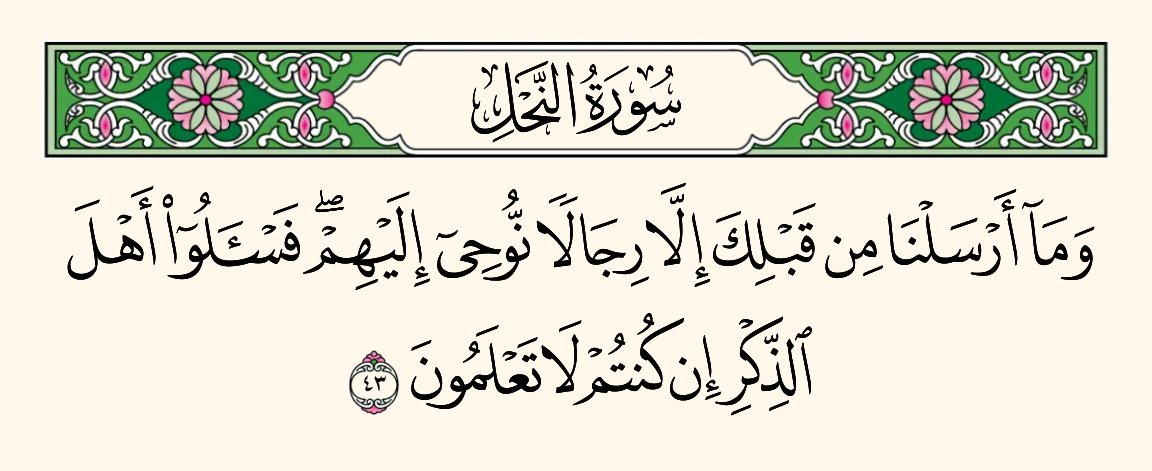 سُورَةُ النَّحْلِ
وَمَآ أَرْسَلْنَا مِن قَبْلِكَ إِلَّا رِجَالًا نُّوحِىٓ إِلَيْهِمْ ۖ فَسْـَٔلُوٓا۟ أَهْلَ
ٱلذِّكْرِ إِن كُنتُمْ لَا تَعْلَمُونَ ٤٣